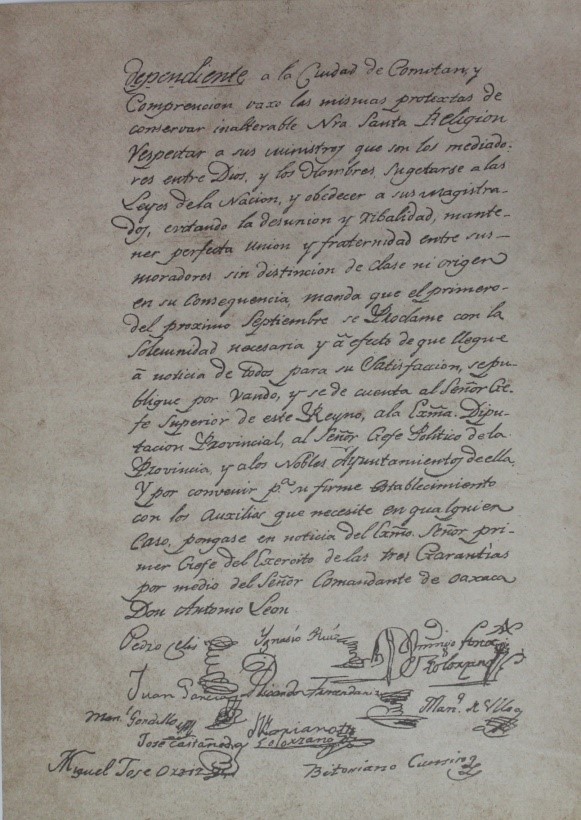 dependiente a la Ciudad de Comitan, y
Comprencion vaxo las mismas protextas de
conservar inalterable Nra Santa Religion
Respectar a sus ministros que son los mediado-
res entre Dios, y los Hombres, Sugetarse a las
Leyes de la Nacion, y obedecer a sus Magistra-
dos, evitando la desunion y Ribalidad, mante-
ner perfecta union y fraternidad entre sus
moradores sin distincion de clase ni origen
en su Consequencia manda que el primero
del proximo Septiembre se Proclame con la
Solemnidad necesaria y â efecto de que llegue
â noticia de todos para su Satisfaccion, se pu-
blique por Vando, y se de cuenta al Señor Ge-
fe Superior de este Reyno, a la Exma. Dipu-
tacion Provincial, al Señor Gefe Politico de la
Provincia, y a los Nobles Ayuntamientos de ella.
Y por convenir pª. su firme establecimiento
con los Auxilios que necesite en qualquier
Caso, pongase en noticia del Exmo. Señor pri-
mer Gefe del Exercito de las tres Garantias
por medio del Señor Comandante de Oaxaca
Don Antonio Leon
Pedro Celis Ygnasio Ruiz
Solorzano
Juan Garcia Fernandariz Manl. de Ulloa
Manl. Gordillo
José Castañeda Solorzano
Miguel Jose Bitoriano